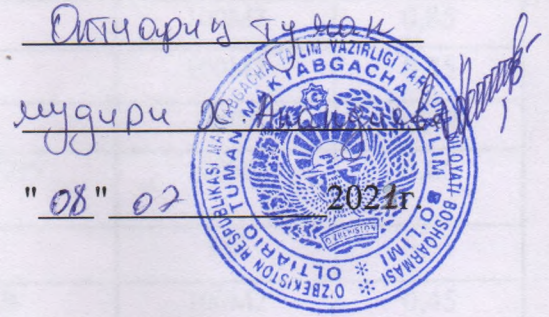 Олтиариқ туман
мудири Х
"08" 02 2021г.
O'ZBEKISTON RESPUBLIKASI MAKTABGACHA TA'LIM VAZIRLIGI FARG'ONA VILOYATI BOSHQARMASI
OLTIARIQ TUMAN MAKTABGACHA TA'LIM BO'LIMI